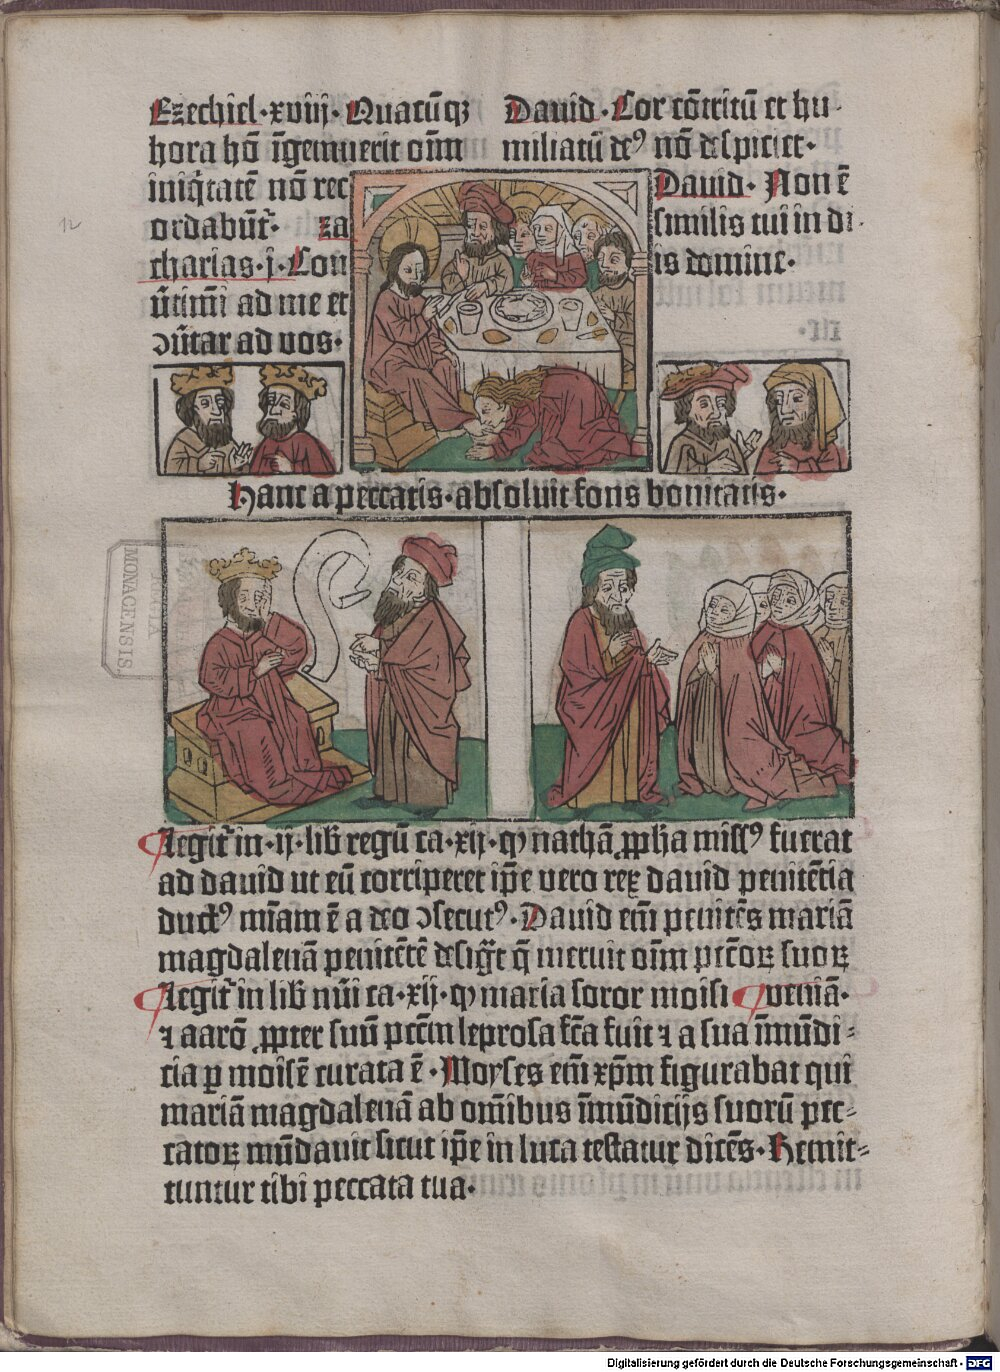 Ezechiel · xviij · Quacūqꝫ
hora hō īgemuerit oīm
iniq̄tatē nō rec
ordabūt᷑ · za
charias · j · Con
ūtimī ad me et
ɔūtar ad vos ·
David · Cor cōtritū et hu
miliatū deꝰ nō despiciet ·
David · Non ē
similis tui in di
is domine ·
12
Hanc a peccatis · absoluit fons bonitatis ·
MONACENSIS.
Legit᷑ in · ij · lib̄ regū ca · xij · ꝙ nathā ꝓpha missꝰ fuerat
ad david ut eū corriperet ip̄e vero rex david penitētia
ductꝰ mīam ē a deo ɔsecutꝰ · David em̄ penitēs mariā
magdalenā penitētē desigt̄ q̄ meruit oīm pctōꝝ suoꝝ
Legit᷑ in lib̄ nūi ca · xij · ꝙ maria soror moisi veniā ·
⁊ aarō ꝓpter suū pctm̄ leprosa fc̄a fuit ⁊ a sua īmūdi-
cia p moisē curata ē · Moyses em̄ xp̄m figurabat qui
mariā magdalenā ab om̄ibus īmūdicijs suorū pec-
catoꝝ mūdavit sicut ip̄e in luca testatur dicēs · Remit-
tuntur tibi peccata tua ·
Digitalisierung gefördert durch die Deutsche Forschungsgemeinschaft - DFG